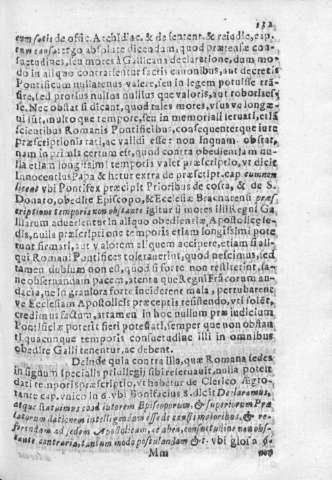 132
cum satis de offic. Archidiac. & de sentent. & reiudic, cap.
cum causa: ergo absolute dicendum, quod prætensæ con-
suetudines, seu mores à Gallicana declaratione, dum mo-
do in aliquo contrasentur factis canonibus, aut decretis
Pontificum nullatenus valere, seu in legem potuisse trã-
sire, sed prorsus nullos nullius que valoris, aut roboris es-
se. Nec obstat si dicant, quod tales mores, vsu ve longæ-
ui sūt, multo que tempore, seu in memoriali seruati, etiã
scientibus Romanis Pontificibus, consequenterque iure
præscriptionis rati, ac validi esse: non inquam obstat,
nam in primis certum est, quod contra obedientiam nul-
la etiam longissimi temporis valet præscriptio, vt dicit
Innocentius Papa & hetur extra de præscript. cap. cum non
liceat vbi Pontifex præcipit Prioribus de costa, & de S.
Donato, obedire Episcopo, & Ecclesiæ Bracharensi præs-
criptione temporis non obstante igitur si mores illi Regni Ga-
lliarum aduersentur in aliquo obedientiæ, Apostolicæ se-
dis, nulla præscriptione temporis etiam longissimi pote-
runt firmari, aut valorem aliquem accipere, etiam si ali-
qui Romani Pontifices tolerauerint, quod nescimus, sed
tamen dubium non est, quod si forte non restiterint, sa-
ne obseruandam pacem, atenta que Regni Frãcorum au-
dacia, ne in grandiora forte inciderent mala, perturbare-
ve Ecclesiam Apostolicis præceptis resistendo, vti solēt,
credimus factum, attamen in hoc nullum præiudicium
Pontificiæ poterit fieri potestati, semper que non obstan-
ti quacunque temporis consuetudine illi in omnibus
obedire Galli tenentur, ac debent.
Deinde quia contra illa, quæ Romana sedes
in signum specialis priuilegij sibi reseruauit, nulla potest
dari temporis præscriptio, vt habetur de Clerico Ægro-
tante cap. vnico in 6. vbi Bonifacius 8. dicit Declaramus,
atque statuimus coad iutorem Episcoporum, & superiorum Præ
latorum dationem intelligendam esse de causis maioribus, & re-
ferendam ad sedem Apostolicam, et ab ea, consuetudine non obs-
tante contraria, tantum modo postulandam & c. vbi glosa 6.
Mm